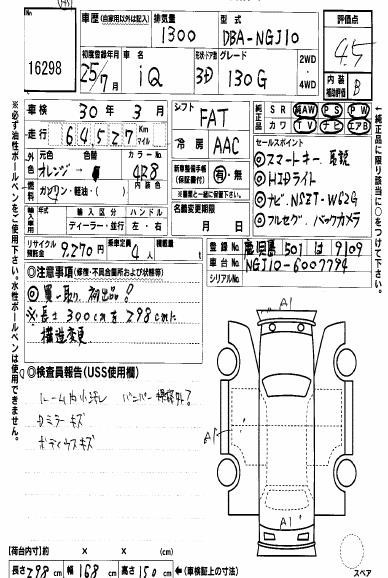 No.
16298
車歴 (自家用以外は記入)
排気量
1300
型式
DBA-NGJ10
評価点
4.5
初度登録年月
25/7
車名
iQ
形状・ドア数
3D
グレード
130G
2WD
・
4WD
内装
補助評価
B
車検
30年3月
シフト
FAT
純正品
SR 純AW PS PW
カワ TV ナビ エアB
走行
64,527 Km
マイル
冷房
AAC
外色
元色
オレンジ→
色替
カラーNo.
4R8
セールスポイント
◎スマートキー
◎HIDライト
◎ナビ NSZT-W62G
◎フルセグ バックカメラ
燃料
ガソリン・軽油・( )
内装色
新車整備手帳
(保証書付)
有・無
※書類と一緒に提出して下さい。
輸入車
輸入区分
ディーラー・並行
ハンドル
左・右
名義変更期限
月
日
リサイクル預託金
9,270円
乗車定員
4人
積載量
t
登録No.
鹿児島 501 は 9109
車台No.
NGJ10-6007794
シリアルNo.
◎注意事項(修復・不具合箇所および状態等)
◎買い取り 初出品!
※長さ300cmを298cmに
構造変更
◎検査員報告(USS使用欄)
ルーム内小汚れ バンパー
ドミラーキズ
ボディウスキズ
A1
A1
A1
スペア
[荷台内寸]約 × × (cm)
長さ298cm 幅168cm 高さ150cm ←(車検証上の寸法)
※必ず油性ボールペンをご使用下さい。水性ボールペンは使用できません。
純正品に限り該当に○をつけて下さい。